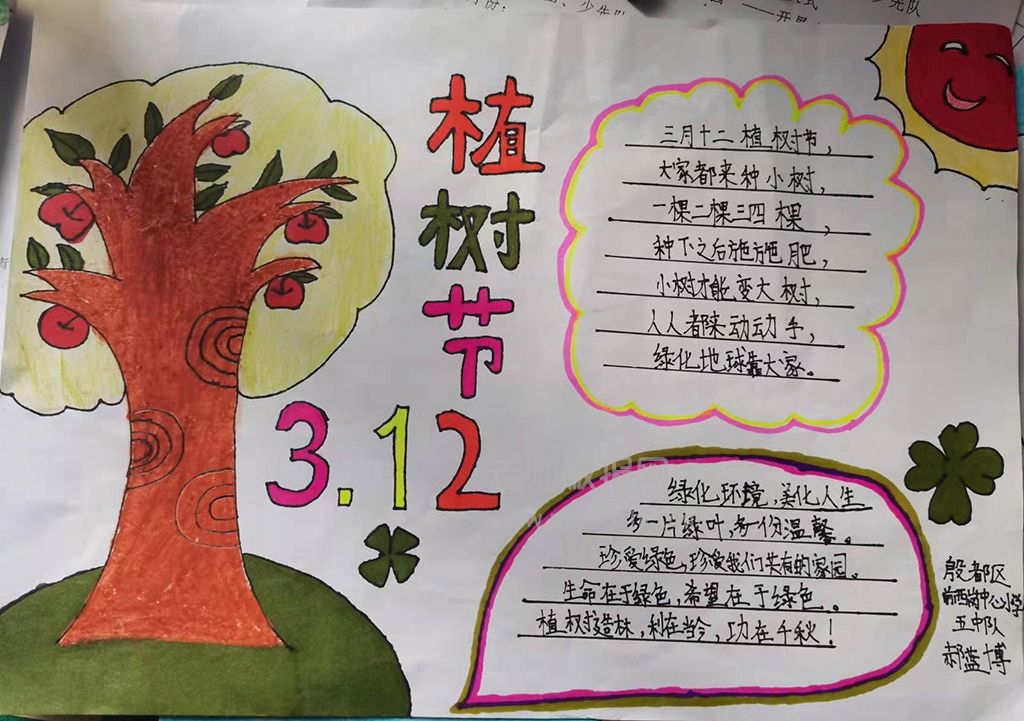 植
树
节
3.12
三月十二植树节，
大家都来种小树，
一棵二棵三四棵，
种下之后施施肥，
小树才能变大树，
人人都来动动手，
绿化地球靠大家。
绿化环境，美化人生
多一片绿叶，多一份温馨。
珍爱绿色，珍爱我们共有的家园。
生命在于绿色，希望在于绿色。
植树造林，利在当今，功在千秋！
殷都区
前西岗中心小学
五中队
郝蓝博